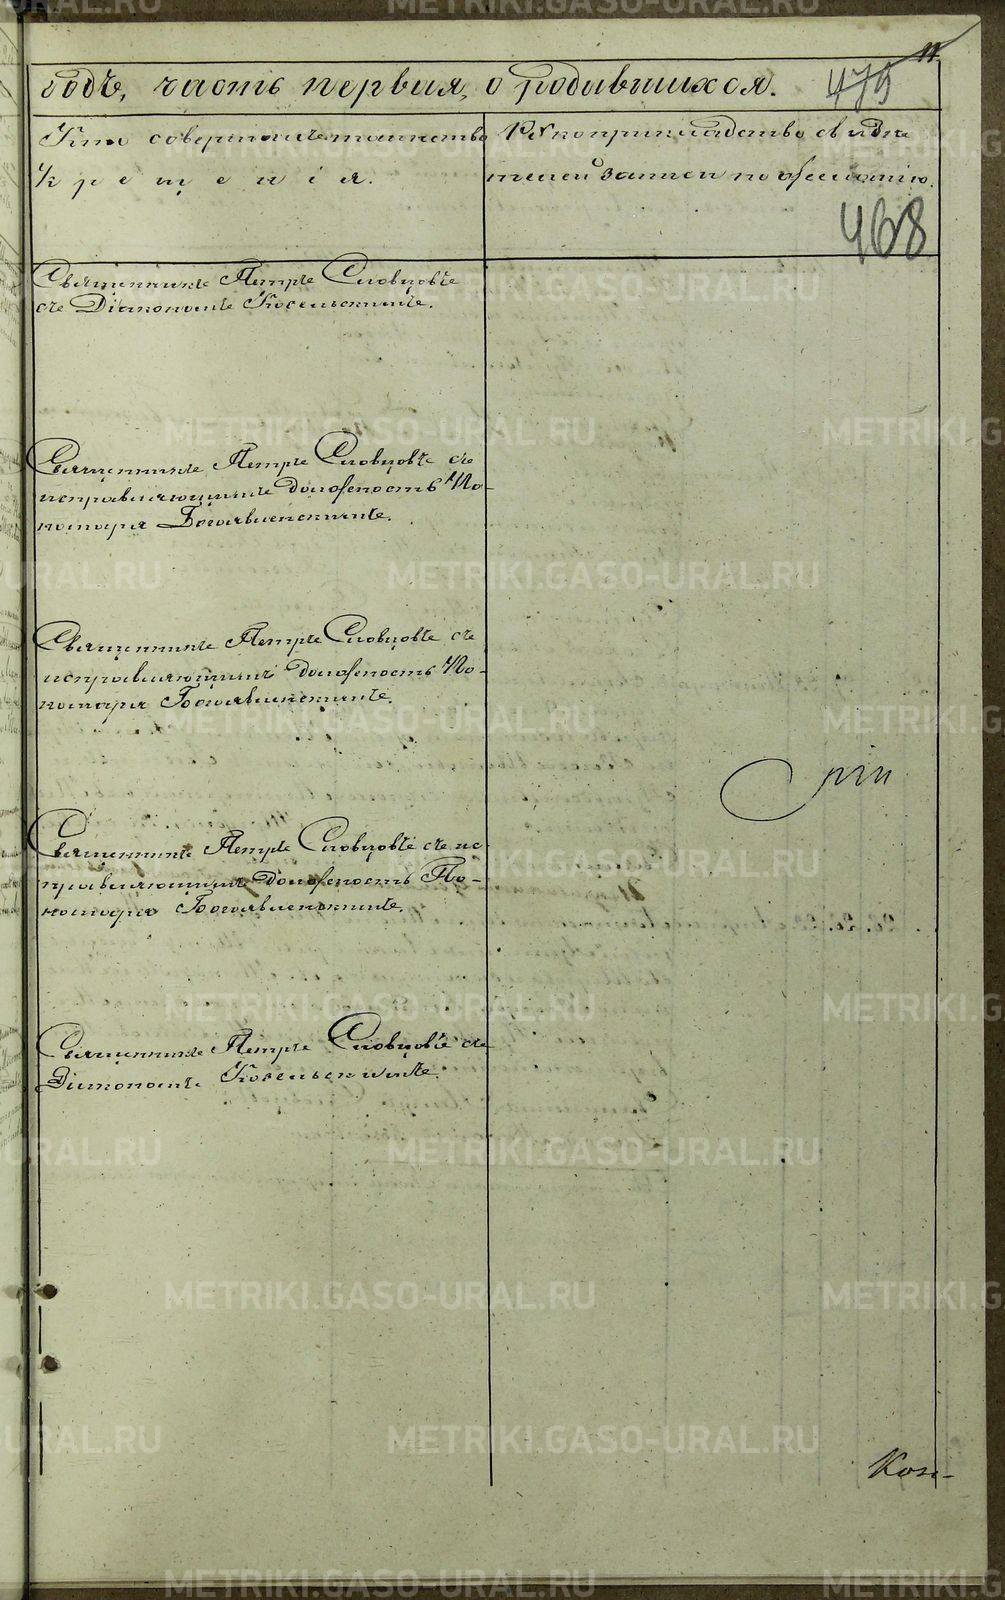 11
годъ, часть первая, о родившихся. 475
Кто совершалъ таинство
крещенія.
Рукоприкладство свидѣ-
телей записи по желанію.
468
Священникъ Петръ Словцовъ
съ Діакономъ Косельскимъ.
Священникъ Петръ Словцовъ съ
исправляющимъ должность По-
номаря Богоявленскимъ.
Священникъ Петръ Словцовъ съ
исправляющимъ должность По-
номаря Богоявленскимъ.
Священникъ Петръ Словцовъ съ ис-
правляющимъ должность По-
номаря Богоявленскимъ.
Священникъ Петръ Словцовъ съ
Діакономъ Косельскимъ.
METRIKI.GASO-URAL.RU